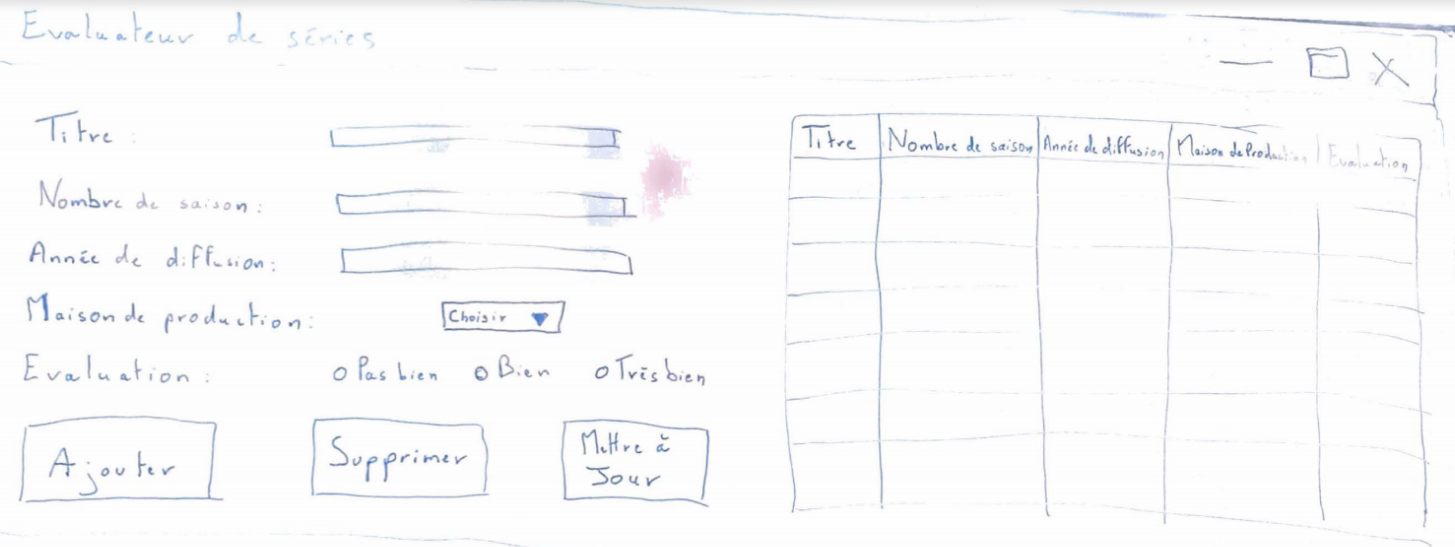 Evaluateur de séries
Titre :
Nombre de saison :
Année de diffusion :
Maison de production :
Choisir
Evaluation :
Pas bien
Bien
Très bien
Ajouter
Supprimer
Mettre à
Jour
Titre
Nombre de saison
Année de diffusion
Maison de Production
Evaluation